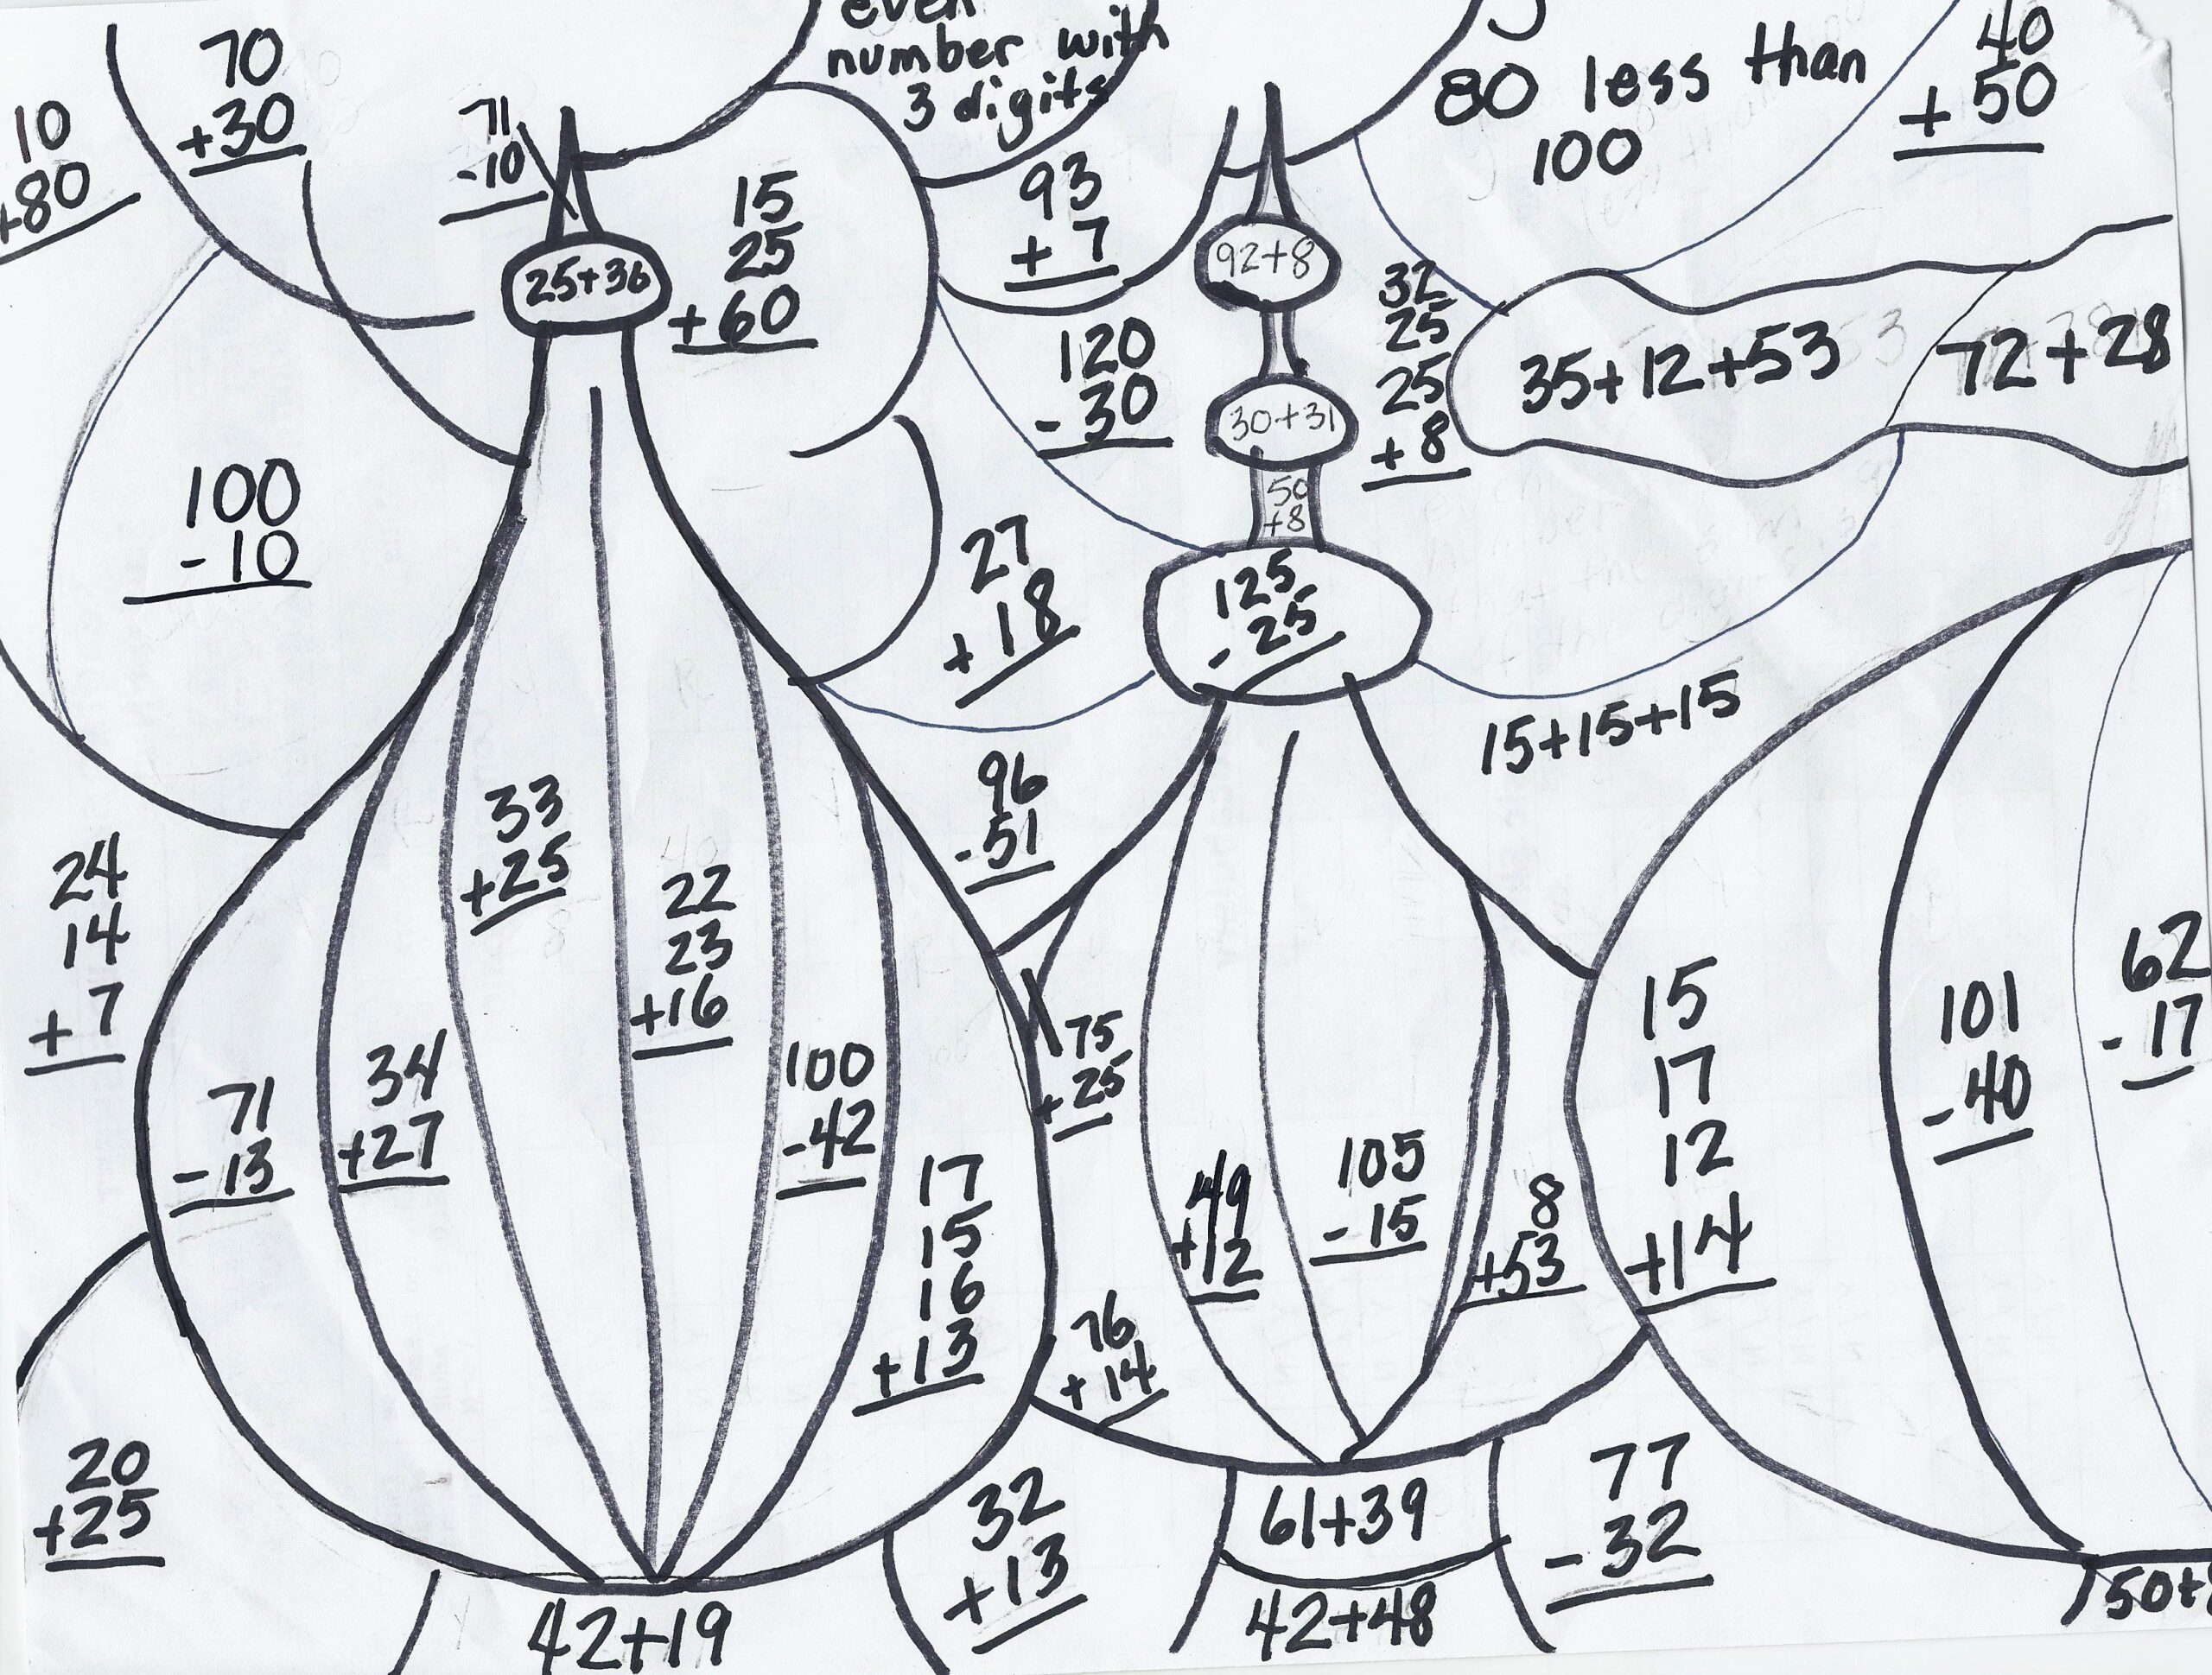 even
number with
3 digits
80 less than
100
40
+ 50
70
+30
10
+80
71
-10
15
25
+60
25+36
93
+ 7
92+8
120
- 30
32
25
25
+ 8
35+12+53
72+28
30+31
50
+8
100
- 10
27
+ 18
125
- 25
15+15+15
96
- 51
33
+25
24
14
+ 7
22
23
+16
15
17
12
+14
101
- 40
62
- 17
75
+ 25
71
- 13
34
+27
100
- 42
17
15
16
+ 13
49
+12
105
- 15
8
+53
76
+ 14
20
+25
32
+ 13
61+39
77
- 32
42+19
42+48